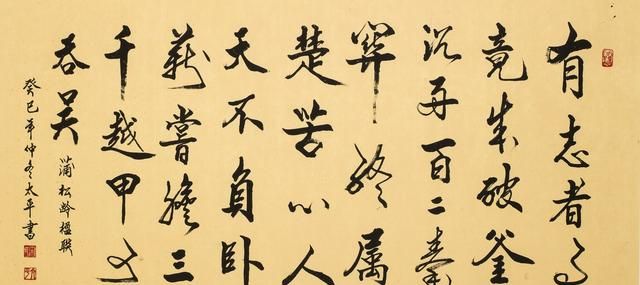 有志者事
竟成破釜
沉舟百二秦
關终属
楚苦心人
天不负卧
薪嘗膽三
千越甲可
吞吴
蒲松龄楹联
癸巳年仲冬太平書